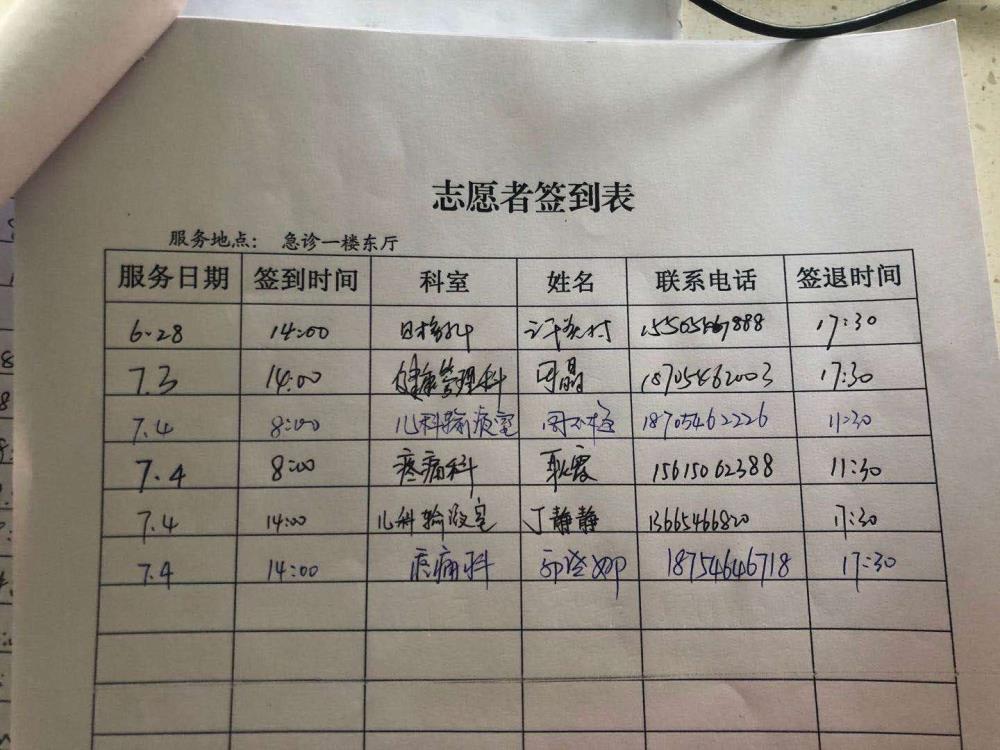 志愿者签到表
服务地点： 急诊一楼东厅
服务日期 签到时间 科室 姓名 联系电话 签退时间
6.28 14:00 17:30
7.3 14:00 健康管理科 18705462003 17:30
7.4 8:00 儿科输液室 18705462226 11:30
7.4 8:00 疼痛科 15615062388 11:30
7.4 14:00 儿科输液室 丁静静 13665466820 17:30
7.4 14:00 疼痛科 18754646718 17:30